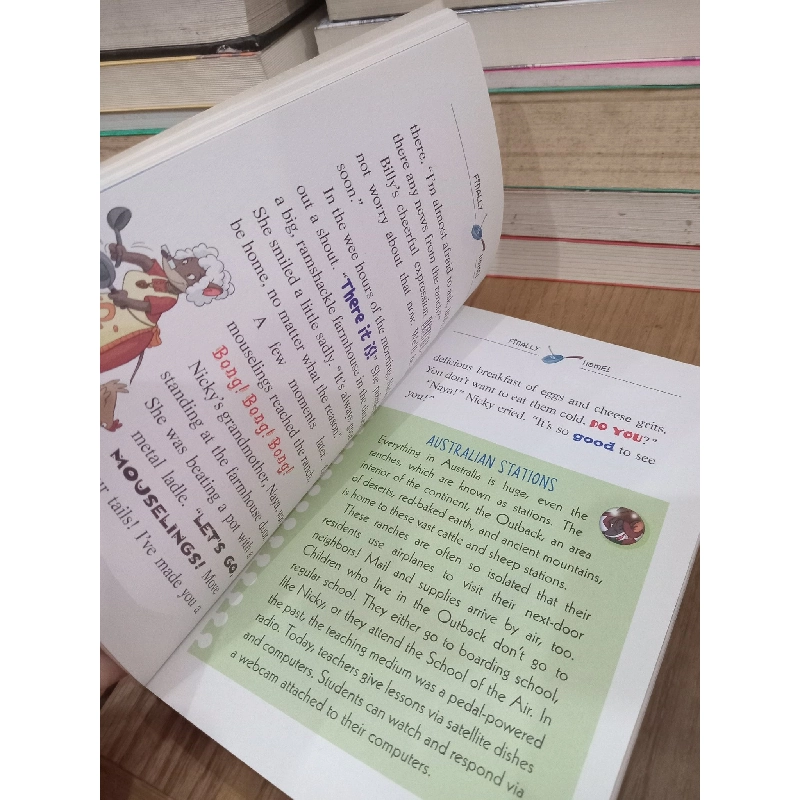 FINALLY
there. "I'm almost afraid to ask
there any news from the
Billy's cheerful expression
not worry about that now.
soon."
In the wee hours of the morning,
out a shout. "There it is:
a big, ramshackle farmhouse in the
She smiled a little sadly. "It's always
be home, no matter what the reason."
A few moments later,
mouselings reached the ranch.
Bong! Bong! Bong!
Nicky's grandmother, Naya, was
standing at the farmhouse door.
She was beating a pot with a
metal ladle. "LET'S GO,
MOUSELINGS! Move
tails! I've made you a
FINALLY HOME!
delicious breakfast of eggs and cheese grits.
You don't want to eat them cold. DO YOU?"
"Naya!" Nicky cried. "It's so good to see
you!"
AUSTRALIAN STATIONS
Everything in Australia is huge, even the
ranches, which are known as stations. The
interior of the continent, the Outback, an area
of deserts, red-baked earth, and ancient mountains,
is home to these vast cattle and sheep stations.
These ranches are often so isolated that their
residents use airplanes to visit their next-door
neighbors! Mail and supplies arrive by air, too.
Children who live in the Outback don't go to
regular school. They either go to boarding school,
like Nicky, or they attend the School of the Air. In
the past, the teaching medium was a pedal-powered
radio. Today, teachers give lessons via satellite dishes
and computers. Students can watch and respond via
a webcam attached to their computers.